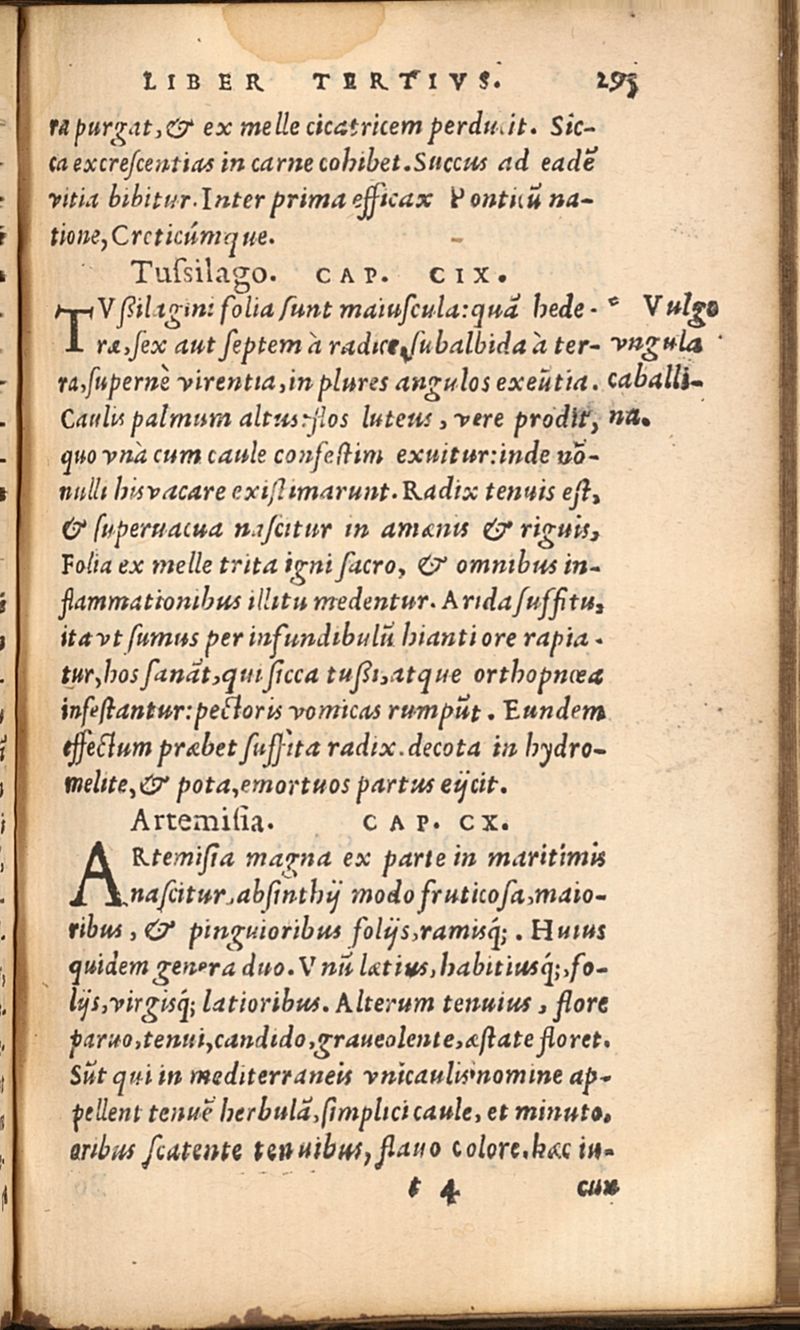 LIBER TERTIVS. 295
ra purgat, & ex melle cicatricem perducit. Sic-
ca excrescentias in carne cohibet. Succus ad eadē
vitia bibitur. Inter prima efficax Ponticū na-
tione, Creticúmque.
Tussilago. CAP. CIX.
TVßilagini folia sunt maiuscula: quā hede-
ræ, sex aut septem à radice, subalbida à ter-
ra, supernè virentia, in plures angulos exeūtia.
Caulis palmum altus: flos luteus, vere prodit,
quo vnà cum caule confestim exuitur: inde nō-
nulli his vacare existimarunt. Radix tenuis est,
& superuacua nascitur in amœnis & riguis,
Folia ex melle trita igni sacro, & omnibus in-
flammationibus illitu medentur. Arida suffitu,
ita vt fumus per infundibulū hianti ore rapia-
tur, hos sanāt, qui sicca tußi, atque orthopnœa
infestantur: pectoris vomicas rumpūt. Eundem
effectum præbet suffita radix. decota in hydro-
melite, & pota, emortuos partus eijcit.
Vulgo
vngula
caballi-
na.
Artemisia. CAP. CX.
ARtemisia magna ex parte in maritimis
nascitur, absinthij modo fruticosa, maio-
ribus, & pinguioribus folijs, ramisq́;. Huius
quidem genera duo. Vnū latius, habitiusq́;, fo-
lijs, virgisq́; latioribus. Alterum tenuius, flore
paruo, tenui, candido, graueolente, æstate floret.
Sūt qui in mediterraneis vnicaulis nomine ap-
pellent tenuē herbulā, simplici caule, et minuto.
oribus scatente tenuibus, flauo colore. hæc iu-
t 4 cun